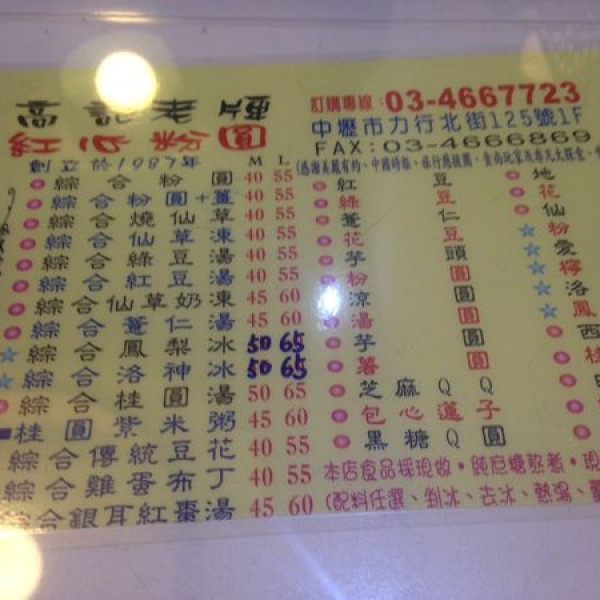 高記老牌
訂購專線：03-4667723
紅心粉圓
中壢市力行北街125號1F
創立於1987年
FAX:03-4666869
M L
綜合粉圓 40 55
綜合粉圓+薏 40 55
綜合燒仙草 40 55
綜合仙草凍 40 55
綜合綠豆湯 40 55
綜合紅豆湯 40 55
綜合仙草奶凍 45 60
綜合薏仁湯 45 60
綜合鳳梨冰 50 65
綜合洛神冰 50 65
綜合桂圓湯 50 65
桂圓紫米粥 45 60
綜合傳統豆花 40 55
綜合雞蛋布丁 40 55
綜合銀耳紅棗湯 45 60
紅豆
綠豆
薏仁
花豆
芋頭
粉圓
涼圓
湯圓
芋圓
薯圓
芝麻QQ
包心蓮子
黑糖Q圓
地
花
仙
粉
愛
檸
洛
鳳
西
桂
本店食品採現做・純蔗糖熬煮・現
(配料任選、剉冰、去冰、熱湯、